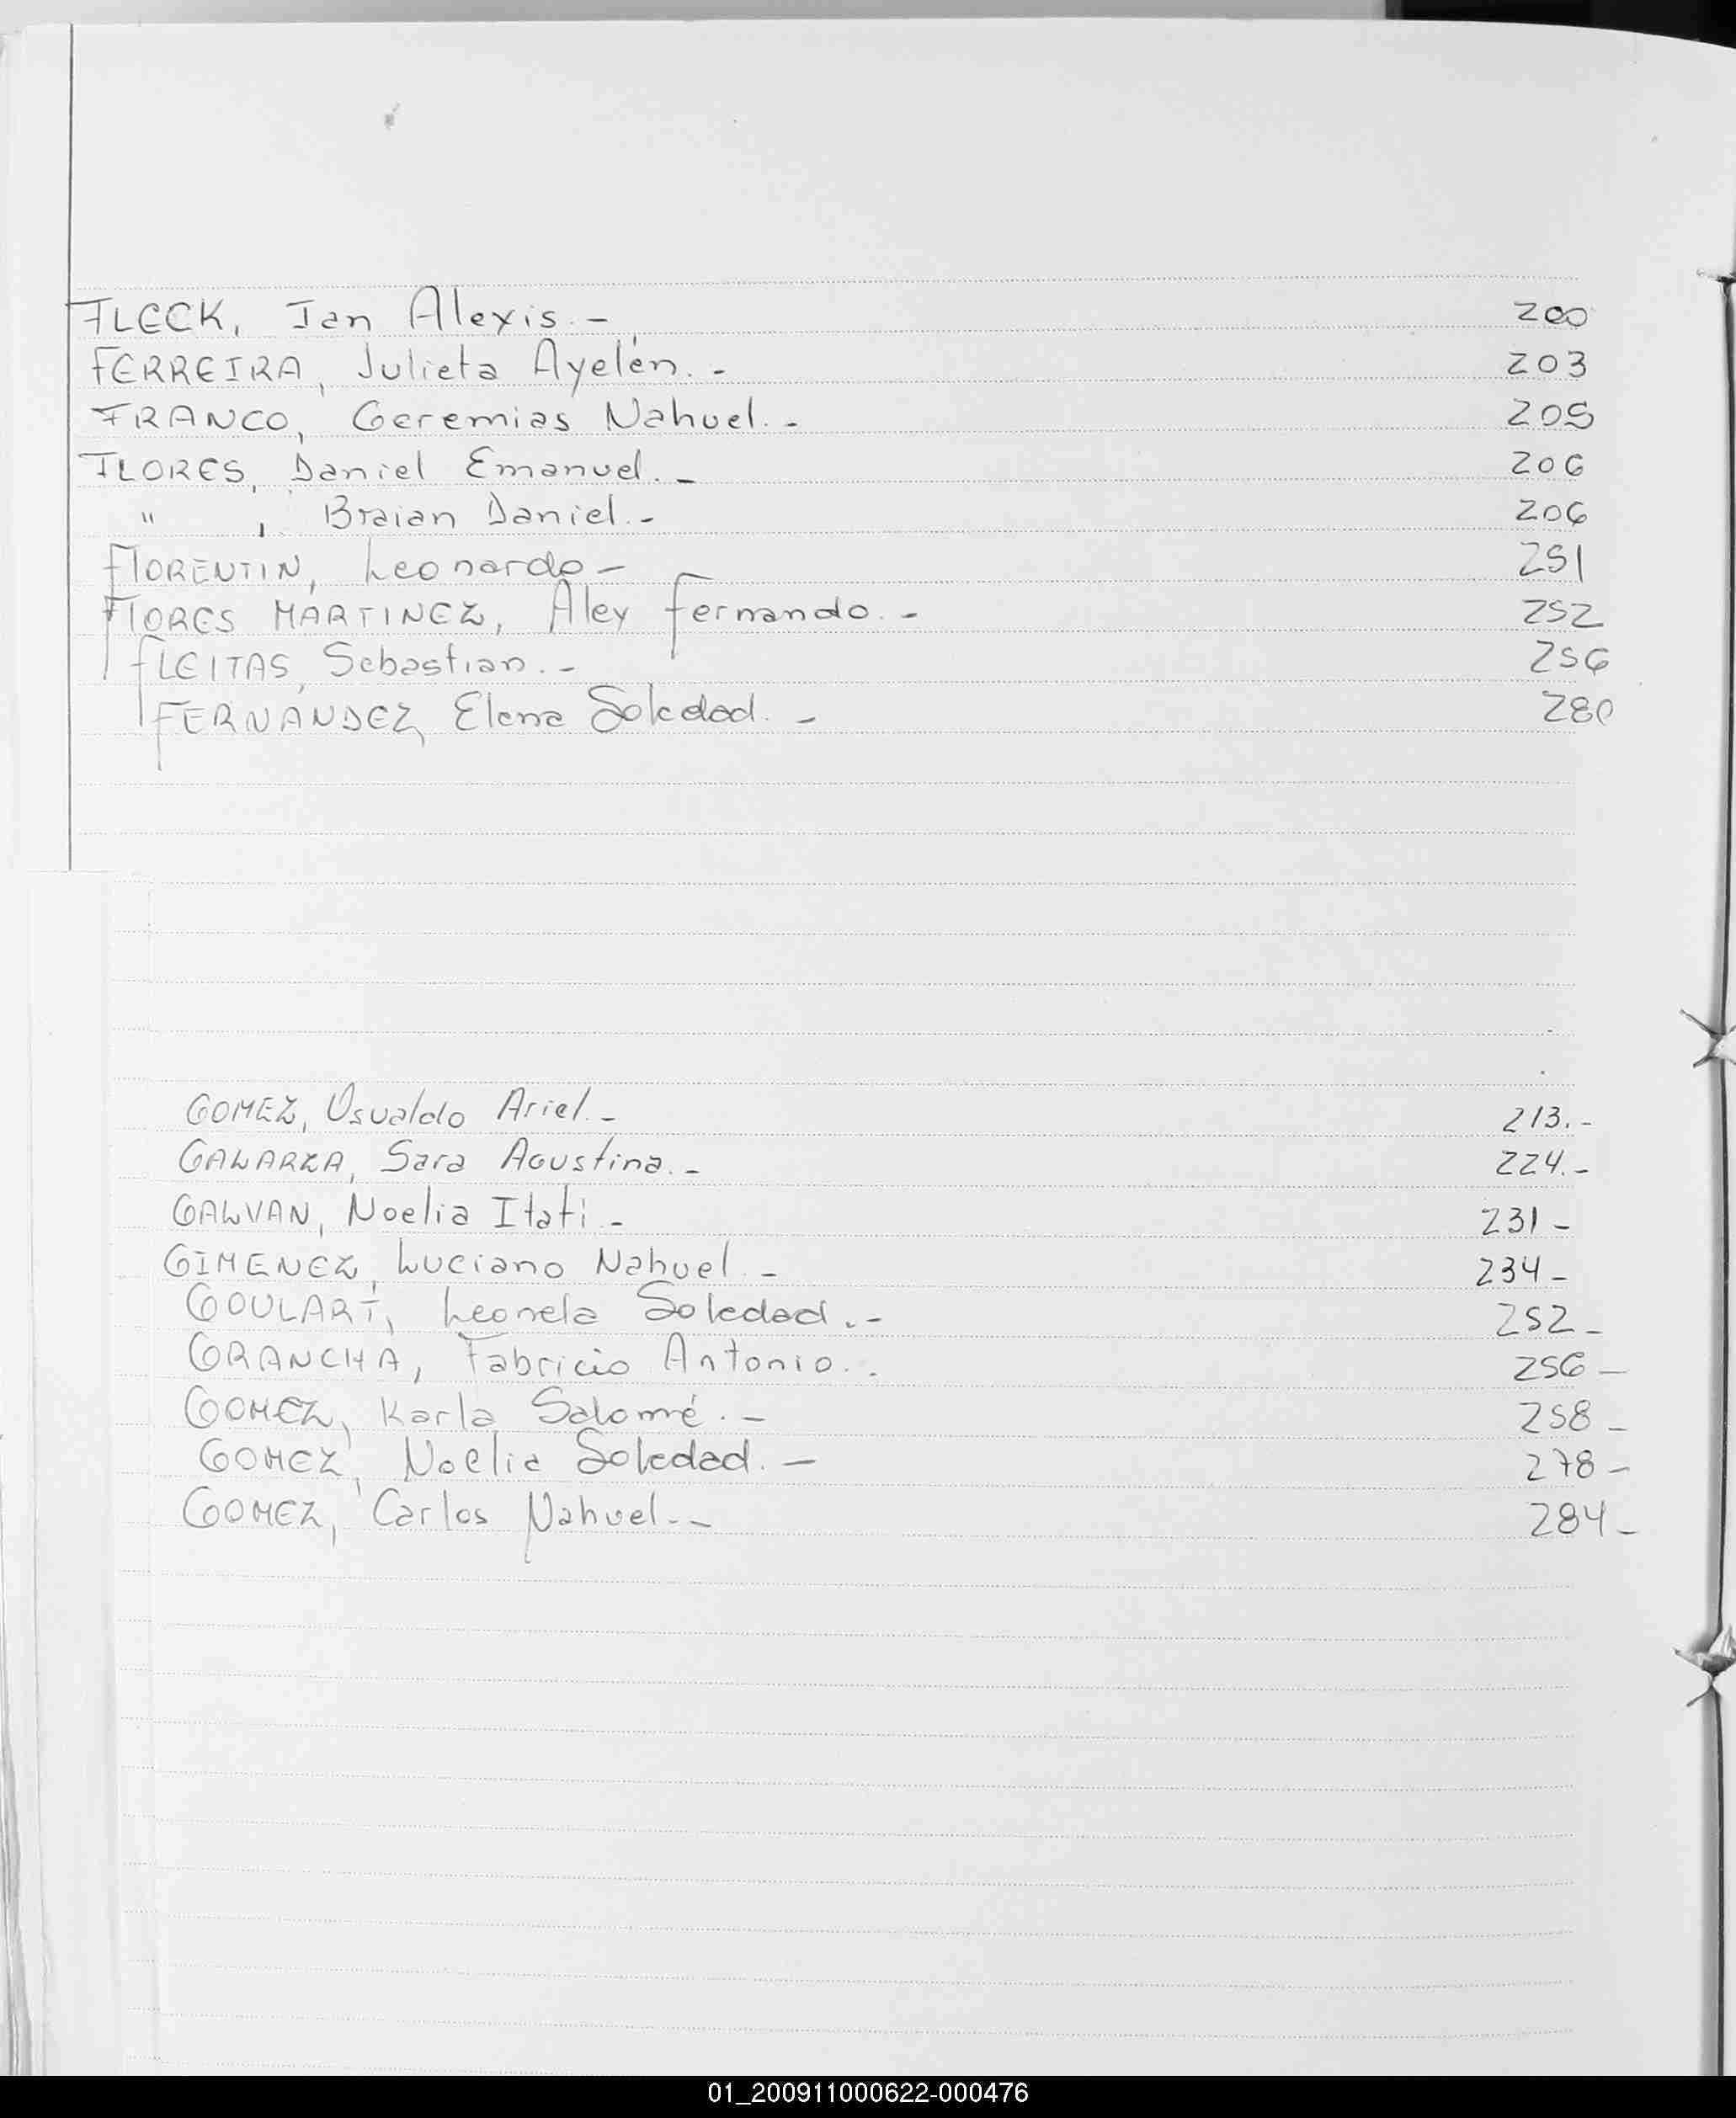 FLECK, Ian Alexis.- 200
FERREIRA, Julieta Ayelén.- 203
FRANCO, Geremias Nahuel.- 205
FLORES, Daniel Emanuel.- 206
" , Braian Daniel.- 206
FLORENTIN, Leonardo- 251
FLORES MARTINEZ, Alex Fernando.- 252
FLEITAS, Sebastian.- 256
FERNANDEZ, Elena Soledad.- 280
GOMEZ, Osvaldo Ariel.- 213.-
GALARZA, Sara Agustina.- 224.-
GALVAN, Noelia Itati.- 231-
GIMENEZ, Luciano Nahuel.- 234-
GOULART, Leonela Soledad.- 252-
GRANCHA, Fabricio Antonio.- 256-
GOMEZ, Karla Salomé.- 258-
GOMEZ, Noelia Soledad.- 278-
GOMEZ, Carlos Nahuel.- 284-
01_200911000622-000476